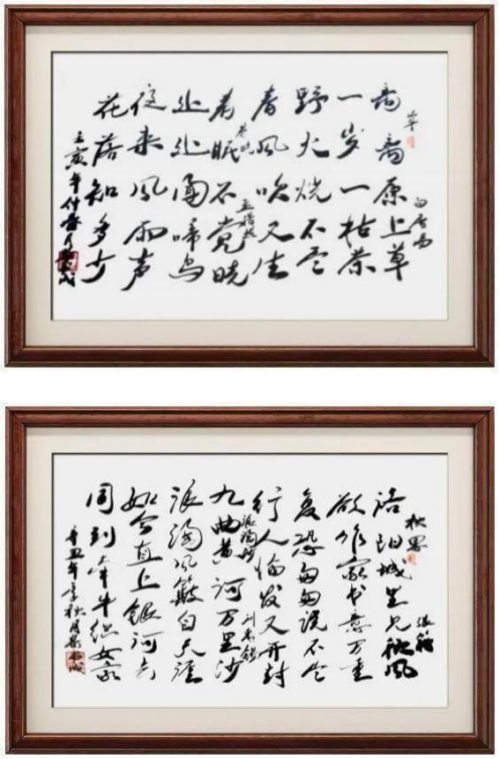 草
白居易
离离原上草
一岁一枯荣
野火烧不尽
春风吹又生
春晓
孟浩然
春眠不觉晓
处处闻啼鸟
夜来风雨声
花落知多少
秋思
张籍
洛阳城里见秋风
欲作家书意万重
复恐匆匆说不尽
行人临发又开封
浪淘沙
刘禹锡
九曲黄河万里沙
浪淘风簸自天涯
如今直上银河去
同到牵牛织女家
辛丑年